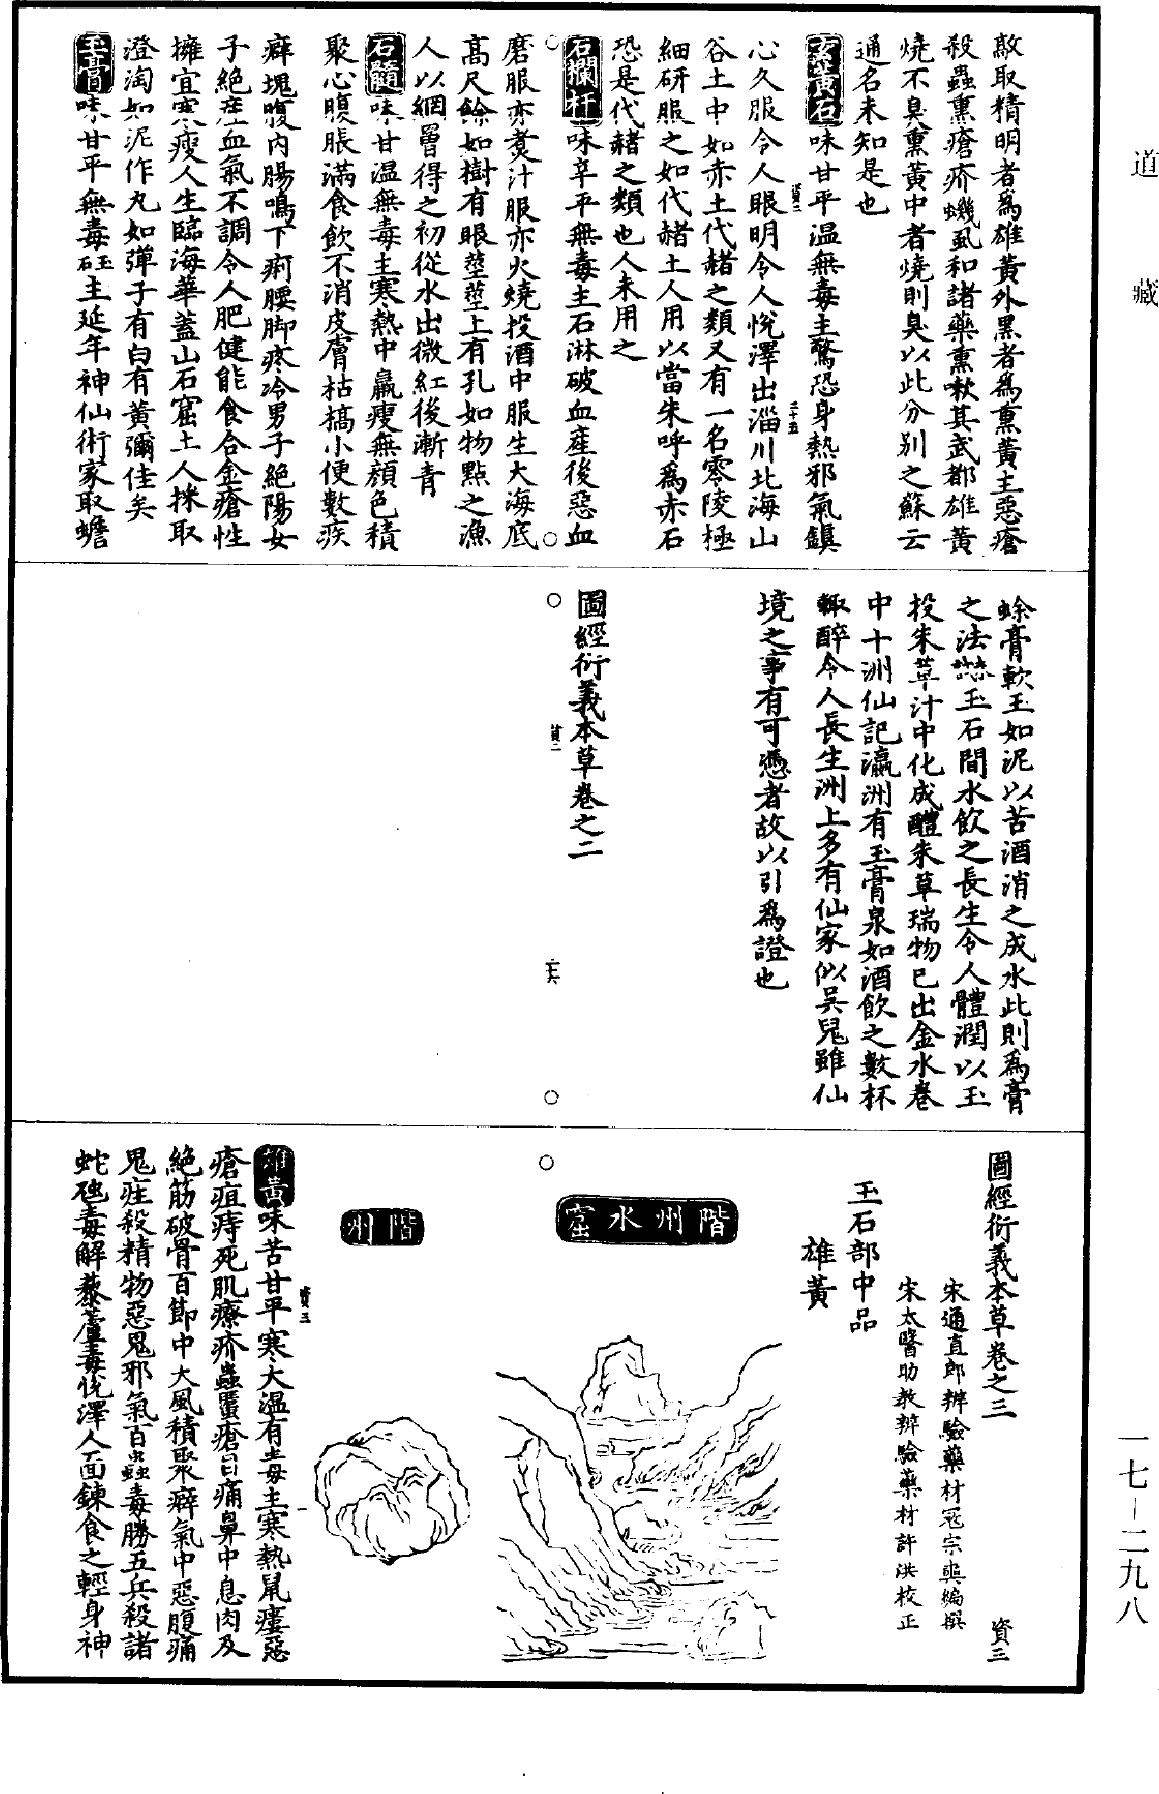 道藏
敵取精明者為雄黃外黑者為熏黃主惡瘡
殺蟲熏瘡疥蟣虱和諸藥熏嗽其武都雄黃
燒不臭熏黃中者燒則臭以此分別之蘇云
通名未知是也
玄黃石味甘平溫無毒主驚恐身熱邪氣鎮
心久服令人眼明令人悅澤出淄川北海山
谷土中如赤土代赭之類又有一名零陵極
細研服之如代赭土人用以當朱呼為赤石
恐是代赭之類也人未用之
石欄杆味辛平無毒主石淋破血產後惡血
磨服亦煑汁服亦火燒投酒中服生大海底
高尺餘如樹有眼莖莖上有孔如物點之漁
人以網罾得之初從水出微紅後漸青
石髓味甘溫無毒主寒熱中羸瘦無顏色積
聚心腹脹滿食飲不消皮膚枯槁小便數疾
癖塊腹內腸鳴下痢腰脚疼冷男子絕陽女
子絕產血氣不調令人肥健能食合金瘡性
擁宜寒瘦人生臨海華蓋山石窟土人採取
澄淘如泥作丸如彈子有白有黃彌佳矣
玉膏味甘平無毒玉石主延年神仙術家取蟾
蜍膏軟玉如泥以苦酒消之成水此則為膏
之法玉石間水飲之長生令人體潤以玉
投朱草汁中化成醴朱草瑞物已出金水卷
中十洲仙記瀛洲有玉膏泉如酒飲之數杯
輙醉令人長生洲上多有仙家似吳兒雖仙
境之事有可憑者故以引為證也
圖經衍義本草卷之二
圖經衍義本草卷之三
資三
宋通直郎辨驗藥材冦宗奭編撰
宋太醫助教辨驗藥材許洪校正
玉石部中品
雄黃
階州水窟
階州
雄黃味苦甘平寒大溫有毒主寒熱鼠瘻惡
瘡疽痔死肌療疥蟲䘌瘡目痛鼻中息肉及
絕筋破骨百節中大風積聚癖氣中惡腹痛
鬼疰殺精物惡鬼邪氣百蟲毒勝五兵殺諸
蛇虺毒解藜蘆毒悅澤人面鍊食之輕身神
資三
一
一七－二九八